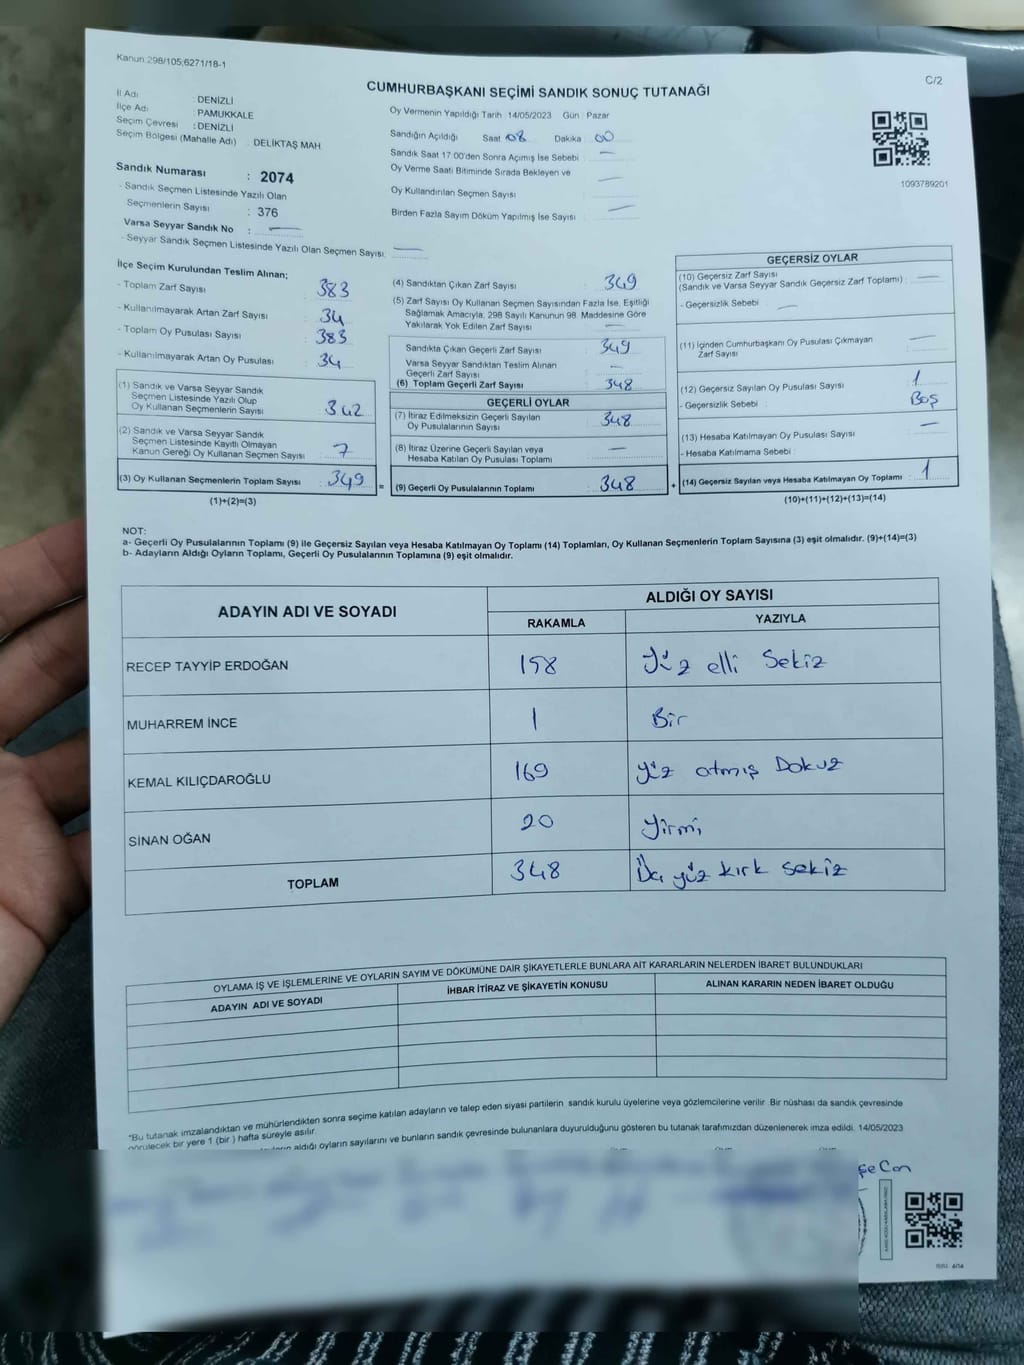 Kanun 298/105;6271/18-1
C/2
CUMHURBAŞKANI SEÇİMİ SANDIK SONUÇ TUTANAĞI
İl Adı : DENİZLİ
İlçe Adı : PAMUKKALE
Seçim Çevresi : DENİZLİ
Seçim Bölgesi (Mahalle Adı) : DELİKTAŞ MAH
Oy Vermenin Yapıldığı Tarih 14/05/2023 Gün : Pazar
Sandığın Açıldığı Saat 08 Dakika 00
Sandık Saat 17 00'den Sonra Açımış İse Sebebi : —
Oy Verme Saati Bitiminde Sırada Bekleyen ve
Oy Kullandırılan Seçmen Sayısı : —
Birden Fazla Sayım Döküm Yapılmış İse Sayısı : —
1093789201
Sandık Numarası : 2074
- Sandık Seçmen Listesinde Yazılı Olan
Seçmenlerin Sayısı : 376
Varsa Seyyar Sandık No : —
- Seyyar Sandık Seçmen Listesinde Yazılı Olan Seçmen Sayısı: —
İlçe Seçim Kurulundan Teslim Alınan;
- Toplam Zarf Sayısı 383
- Kullanılmayarak Artan Zarf Sayısı 34
- Toplam Oy Pusulası Sayısı 383
- Kullanılmayarak Artan Oy Pusulası 34
(1) Sandık ve Varsa Seyyar Sandık
Seçmen Listesinde Yazılı Olup
Oy Kullanan Seçmenlerin Sayısı 342
(2) Sandık ve Varsa Seyyar Sandık
Seçmen Listesinde Kayıtlı Olmayan
Kanun Gereği Oy Kullanan Seçmen Sayısı 7
(3) Oy Kullanan Seçmenlerin Toplam Sayısı : 349 =
(1)+(2)=(3)
(4) Sandıktan Çıkan Zarf Sayısı : 349
(5) Zarf Sayısı Oy Kullanan Seçmen Sayısından Fazla İse, Eşitliği
Sağlamak Amacıyla, 298 Sayılı Kanunun 98. Maddesine Göre
Yakılarak Yok Edilen Zarf Sayısı : —
Sandıkta Çıkan Geçerli Zarf Sayısı : 349
Varsa Seyyar Sandıktan Teslim Alınan
Geçerli Zarf Sayısı : —
(6) Toplam Geçerli Zarf Sayısı : 348
GEÇERLİ OYLAR
(7) İtiraz Edilmeksizin Geçerli Sayılan
Oy Pusulalarının Sayısı : 348
(8) İtiraz Üzerine Geçerli Sayılan veya
Hesaba Katılan Oy Pusulası Toplamı : —
(9) Geçerli Oy Pusulalarının Toplamı : 348 +
GEÇERSİZ OYLAR
(10) Geçersiz Zarf Sayısı
(Sandık ve Varsa Seyyar Sandık Geçersiz Zarf Toplamı) : —
- Geçersizlik Sebebi : —
(11) İçinden Cumhurbaşkanı Oy Pusulası Çıkmayan
Zarf Sayısı : —
(12) Geçersiz Sayılan Oy Pusulası Sayısı : 1
- Geçersizlik Sebebi : Boş
(13) Hesaba Katılmayan Oy Pusulası Sayısı : —
- Hesaba Katılmama Sebebi :
(14) Geçersiz Sayılan veya Hesaba Katılmayan Oy Toplamı : 1
(10)+(11)+(12)+(13)=(14)
NOT:
a- Geçerli Oy Pusulalarının Toplamı (9) ile Geçersiz Sayılan veya Hesaba Katılmayan Oy Toplamı (14) Toplamları, Oy Kullanan Seçmenlerin Toplam Sayısına (3) eşit olmalıdır. (9)+(14)=(3)
b- Adayların Aldığı Oyların Toplamı, Geçerli Oy Pusulalarının Toplamına (9) eşit olmalıdır.
ADAYIN ADI VE SOYADI
ALDIĞI OY SAYISI
RAKAMLA YAZIYLA
RECEP TAYYİP ERDOĞAN 158 Yüz elli Sekiz
MUHARREM İNCE 1 Bir
KEMAL KILIÇDAROĞLU 169 Yüz atmış Dokuz
SİNAN OĞAN 20 Yirmi
TOPLAM 348 Üç yüz kırk sekiz
OYLAMA İŞ VE İŞLEMLERİNE VE OYLARIN SAYIM VE DÖKÜMÜNE DAİR ŞİKAYETLERLE BUNLARA AİT KARARLARIN NELERDEN İBARET BULUNDUKLARI
ADAYIN ADI VE SOYADI İHBAR İTİRAZ VE ŞİKAYETİN KONUSU ALINAN KARARIN NEDEN İBARET OLDUĞU
*Bu tutanak imzalandıktan ve mühürlendikten sonra seçime katılan adayların ve talep eden siyasi partilerin sandık kurulu üyelerine veya gözlemcilerine verilir Bir nüshası da sandık çevresinde
görülecek bir yere 1 (bir ) hafta süreyle asılır.
aldığı oyların sayılarını ve bunların sandık çevresinde bulunanlara duyurulduğunu gösteren bu tutanak tarafımızdan düzenlenerek imza edildi. 14/05/2023